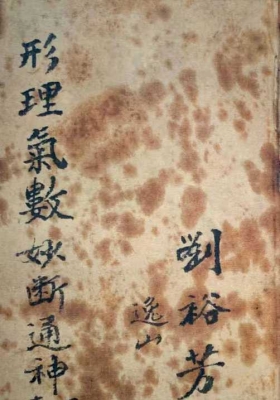 劉裕芳
逸山
形理氣數妙断通神